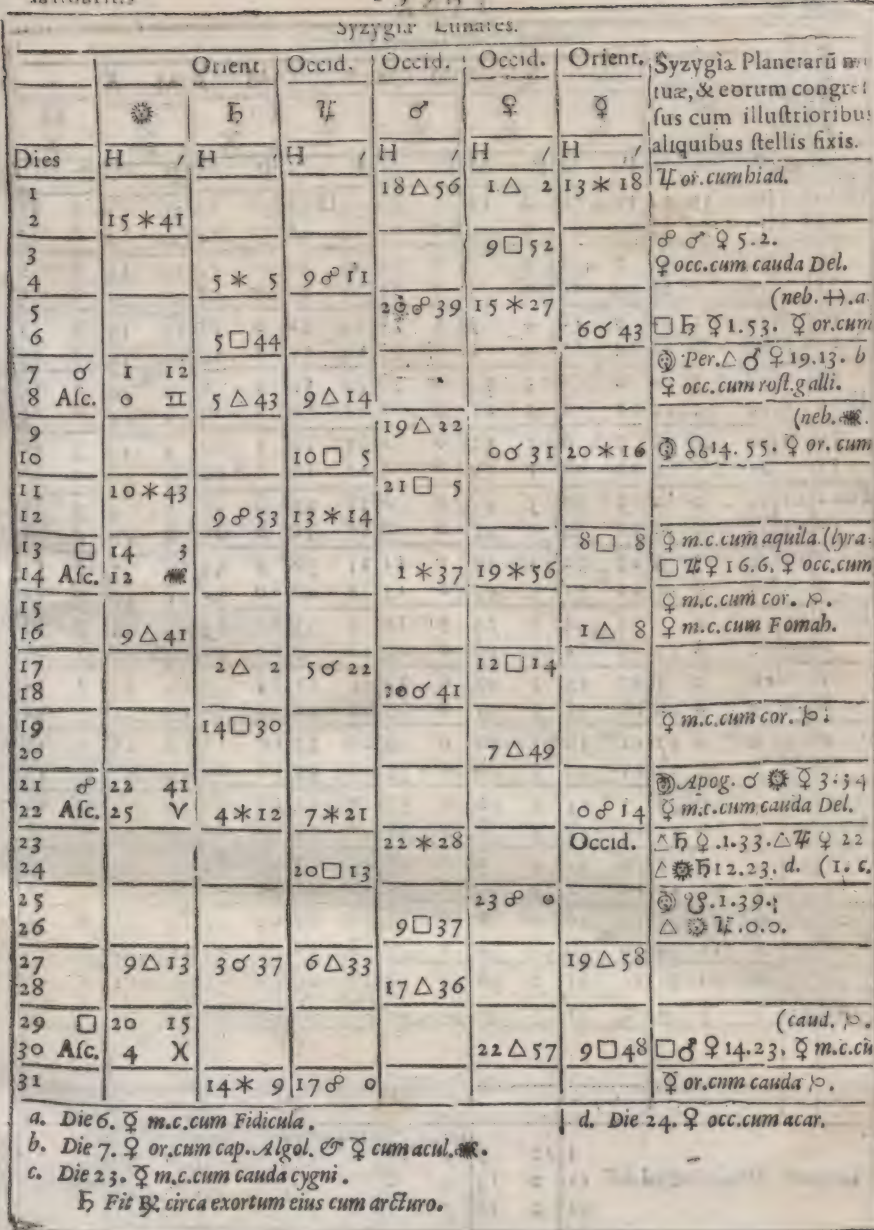 Syzygiæ Lunares.
Orient. Occid. Occid. Occid. Orient. Syzygia Planetarũ
☉ ♄ ♃ ♂ ♀ ☿ tuæ, & eorum
sus cum illustrioribus
aliquibus stellis fixis.
Dies H / H / H / H / H / H /
1 18 △ 56 1 △ 2 13 ⚹ 18 ♃ or. cum hiad.
2 15 ⚹ 41
3 9 □ 52 ☍ ♂ ♀ 5.2.
4 5 ⚹ 5 9 ☍ 11 ♀ occ. cum cauda Del.
5 ☍ 39 15 ⚹ 27 (neb. ♐. a
6 5 □ 44 6 ☌ 43 □ ♄ ☿ 1.53. ☿ or. cum
7 ☌ 1 12 ☽ Per. △ ♂ ♀ 19.13. b
8 Asc. 0 ♊ 5 △ 43 9 △ 14 ♀ occ. cum rost. galli.
9 19 △ 22 (neb. ♏.
10 10 □ 5 0 ☌ 31 20 ⚹ 16 ☽ ☊ 14. 55. ♀ or. cum
11 10 ⚹ 43 21 □ 5
12 9 ☍ 53 13 ⚹ 14
13 □ 14 3 8 □ 8 ☿ m.c. cum aquila. (lyra
14 Asc. 12 ♏ 1 ⚹ 37 19 ⚹ 56 □ ♃ ♀ 16.6. ♀ occ. cum
15 ♀ m.c. cum cor. ♑.
16 9 △ 41 1 △ 8 ♀ m.c. cum Fomah.
17 2 △ 2 5 ☌ 22 12 □ 14
18 ☌ 41
19 14 □ 30 ☿ m.c. cum cor. ♑.
20 7 △ 49
21 ☍ 22 41 ☽ Apog. ☌ ☉ ☿ 3.34
22 Asc. 25 ♈ 4 ⚹ 12 7 ⚹ 21 0 ☍ 14 ☿ m.c. cum cauda Del.
23 22 ⚹ 28 Occid. △ ♄ ♀ .1.33. △ ♃ ♀ 22
24 20 □ 13 △ ☉ ♄ 12.23. d. (1. c.
25 23 ☍ 0 ☽ ☋ .1.39.
26 9 □ 37 △ ☉ ♃ .0.0.
27 9 △ 13 3 ☌ 37 6 △ 33 19 △ 58
28 17 △ 36
29 □ 20 15 (caud. ♑.
30 Asc. 4 ♓ 22 △ 57 9 □ 48 □ ♂ ♀ 14.23. ☿ m.c. cũ
31 14 ⚹ 9 17 ☍ 0 ☿ or. cnm cauda ♑.
a. Die 6. ☿ m.c. cum Fidicula.
d. Die 24. ♀ occ. cum acar.
b. Die 7. ♀ or. cum cap. Algol. & ☿ cum acul. ♏.
c. Die 23. ☿ m.c. cum cauda cygni.
♄ Fit ℞ circa exortum eius cum arcturo.